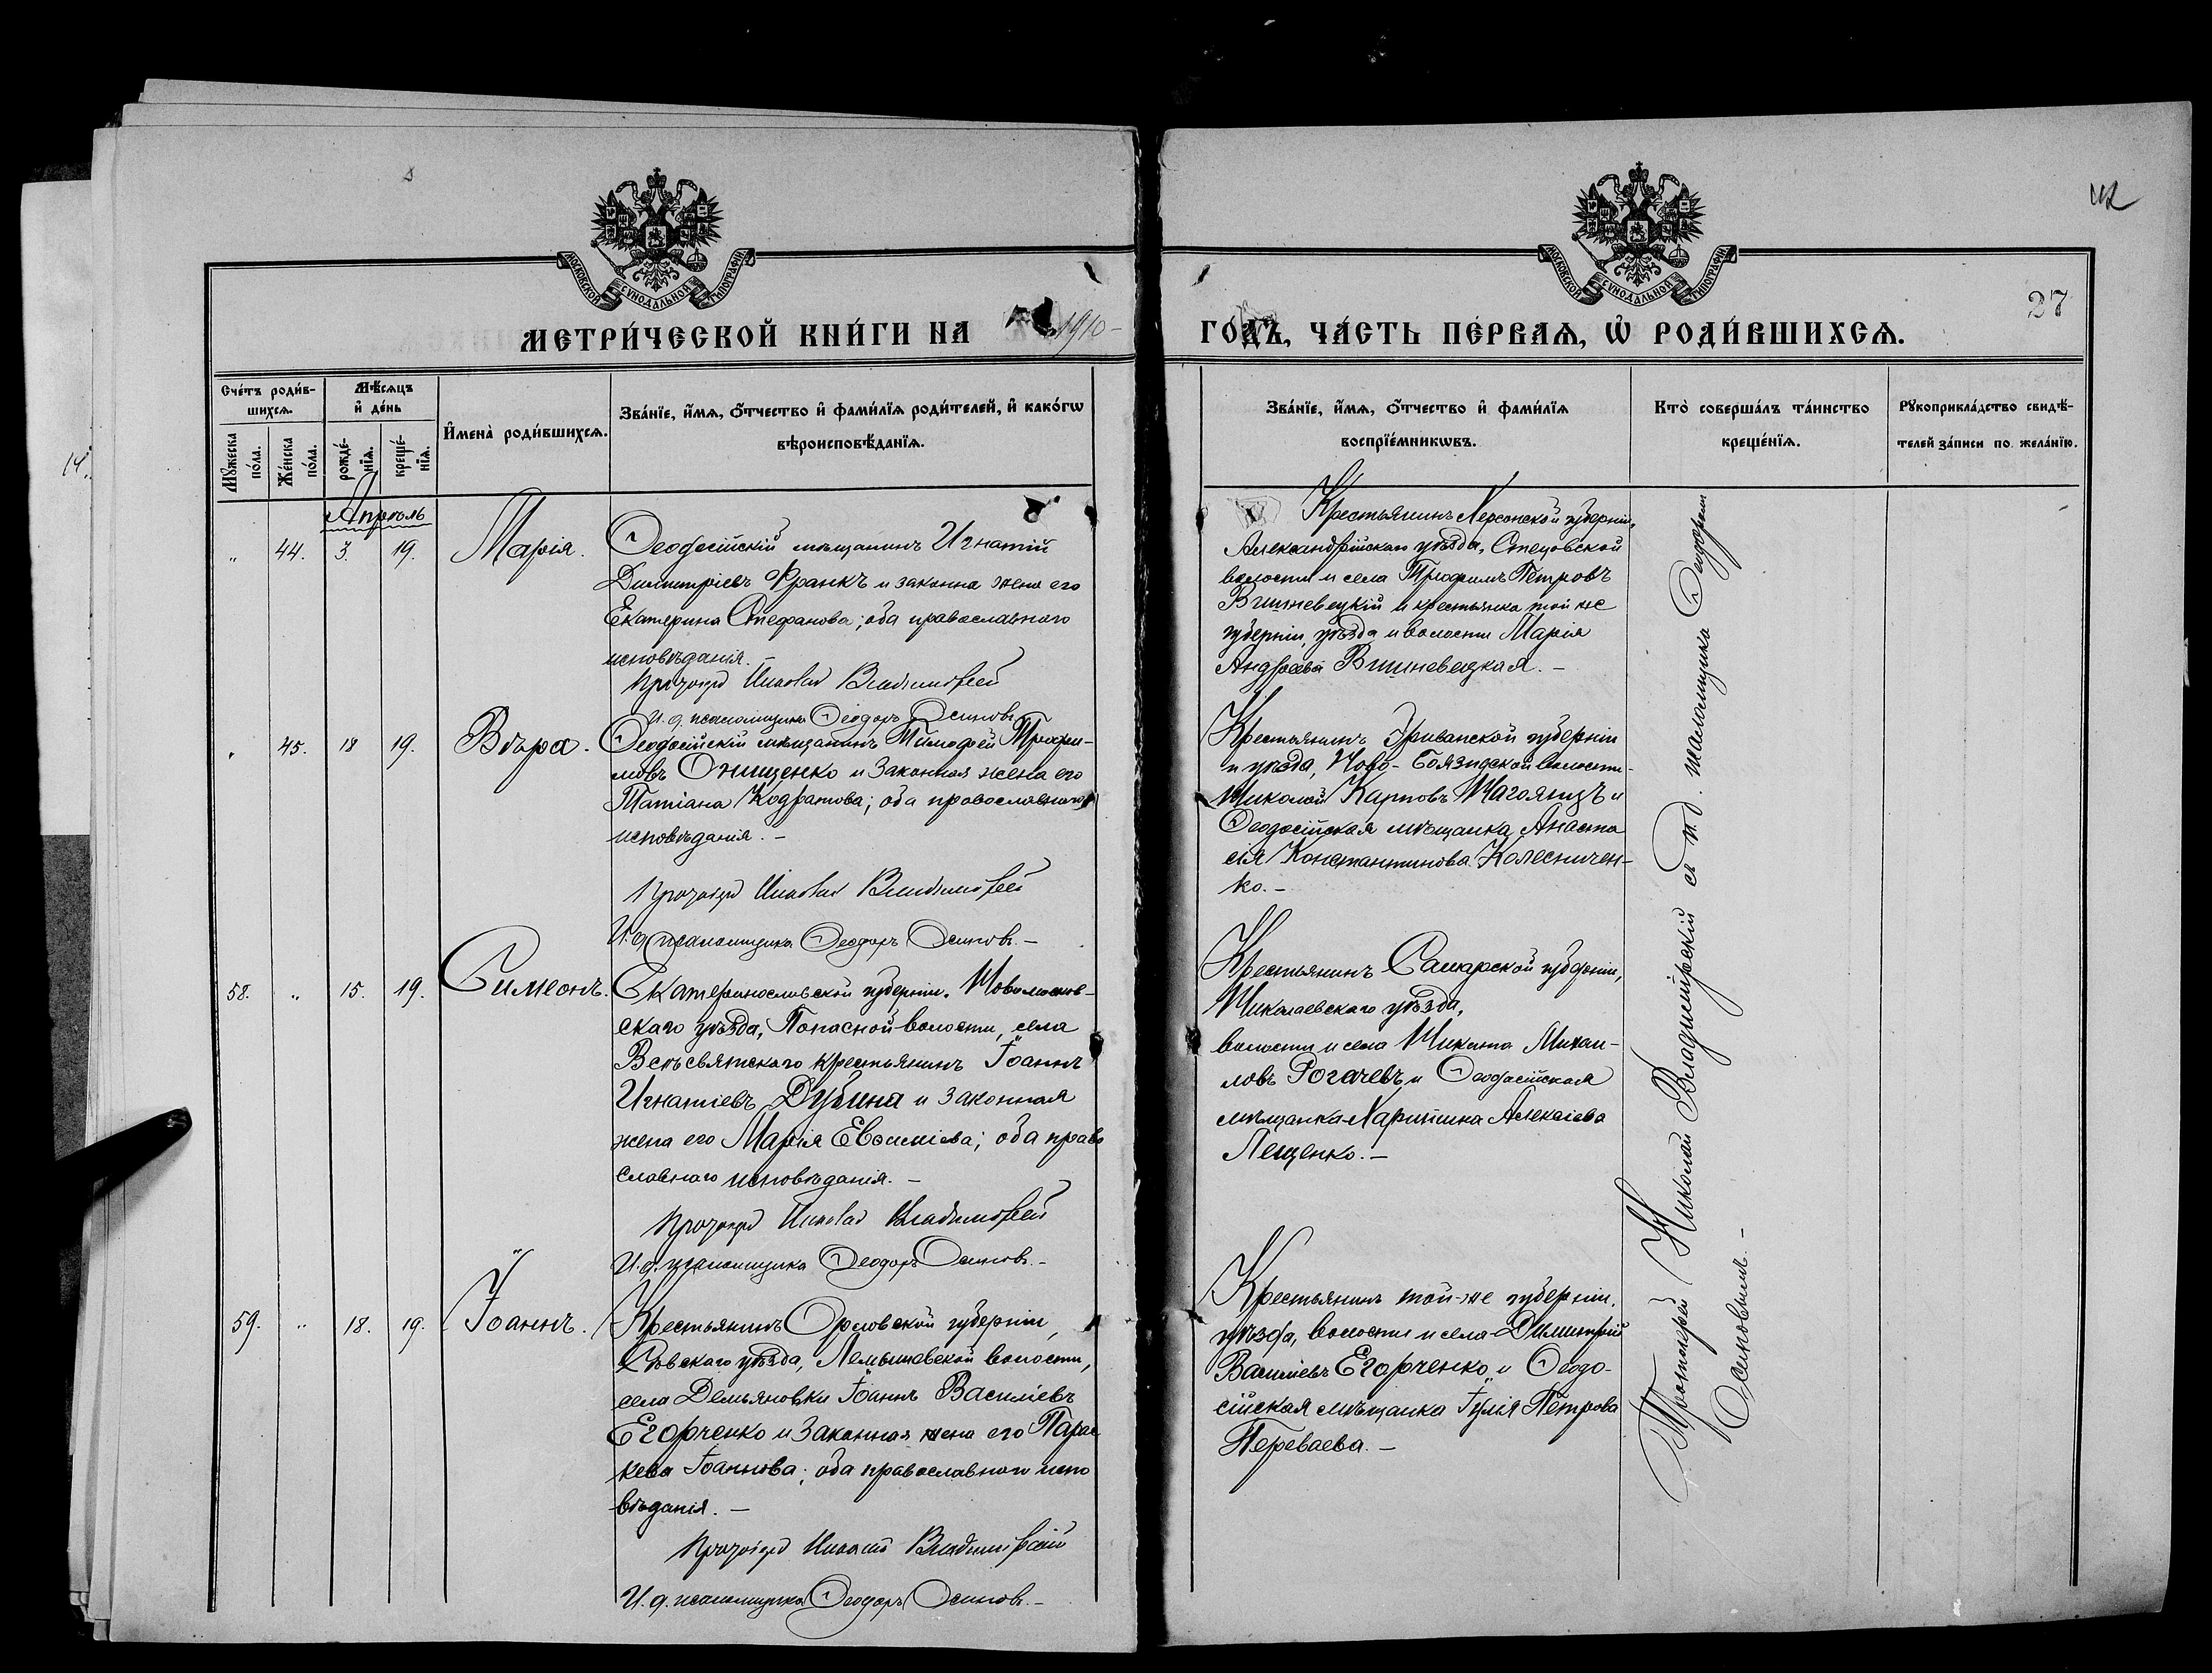 42
27
14.
МОСКОВСКОЙ СѴНОДАЛЬНОЙ ТИПОГРАФІИ
МОСКОВСКОЙ СѴНОДАЛЬНОЙ ТИПОГРАФІИ
МЕТРИ́ЧЕСКОЙ КНИ́ГИ НА 1910 ГО́ДЪ, ЧА́СТЬ ПЕ́РВАѦ, Ѡ҆ РОДИ́ВШИХСѦ.
Сче́тъ роди́в-
шихсѧ.
Мꙋ́жеска по́ла.
Же́нска по́ла.
Мѣ́сѧцъ и҆ де́нь
рожде́-нїѧ.
креще́-нїѧ.
И҆мена̀ роди́вшихсѧ.
Зва́нїе, и҆́мѧ, ѻ҆́тчество и҆ фами́лїѧ роди́телей, и҆ како́гѡ
вѣроисповѣ́данїѧ.
Зва́нїе, и҆́мѧ, ѻ҆́тчество и҆ фами́лїѧ
воспрїе́мникѡвъ.
Кто̀ соверша́лъ та́инство
креще́нїѧ.
Рꙋкоприкла́дство свидѣ́-
телей за́писи по жела́нїю.
Апрѣль
„ 44. 3. 19. Марія.
Ѳеодосійскій мѣщанинъ Игнатій
Димитріевъ Франкъ и законна жена его
Екатерина Стефанова; оба православного
исповѣданія. –
Протоіерей Николай Владимірскій
И. д. псаломщика Ѳеодоръ Осиповъ
Крестьянинъ Херсонской губерніи,
Александрійскаго уѣзда, Стецовской
волости и села Трофимъ Петровъ
Вишневецкій и крестьянка той же
губерніи, уѣзда и волости Марія
Андреева Вишневецкая. –
„ 45. 18 19. Вѣра.
Ѳеодосійскій мѣщанинъ Тимофей Трофи-
мовъ Онищенко и законная жена его
Татіана Кодратова; оба православного
исповѣданія. –
Протоіерей Николай Владимірскій
И. д. псаломщика Ѳеодоръ Осиповъ. –
Крестьянинъ Эриванской губерніи
и уѣзда, Ново-Баязидской волости
Николай Карповъ и
Ѳеодосійская мѣщанка Анаста
сія Константинова Колесничен-
ко. –
58. „ 15. 19. Симеонъ.
Екатеринославской губерніи, Новомосков-
скаго уѣзда, Попасной волости, села
Всѣсвятскаго крестьянинъ Іоаннъ
Игнатіевъ Дубина и законная
жена его Марія Евѳиміева; оба право
славнаго исповѣданія. –
Протоіерей Николай Владимірскій
И. д. псаломщика Ѳеодоръ Осиповъ. –
Крестьянинъ Самарской губерніи,
Николаевскаго уѣзда,
волости и села Никита Михаи-
ловъ Рогачевъ и Ѳеодосійская
мѣщанка Харитина Алексіева
Лещенко. –
59. „ 18. 19. Іоаннъ.
Крестьянинъ Орловской губерніи,
Сѣвскаго уѣзда, волости,
села Демьяновки Іоаннъ Василіевъ
Егорченко и законная жена его Парас
кева Іоаннова; оба православного испо
вѣданія. –
Протоіерей Николай Владимірскій
И. д. псаломщика Ѳеодоръ Осиповъ. –
Крестьянинъ той-же губерніи,
уѣзда, волости и села Димитрій
Василіевъ Егорченко и Ѳеодо-
сійская мѣщанка Іулія Петрова
Переваева. –
Протоіерей Николай Владимірскій съ и. д. псаломщика Ѳеодоромъ
Осиповымъ. –